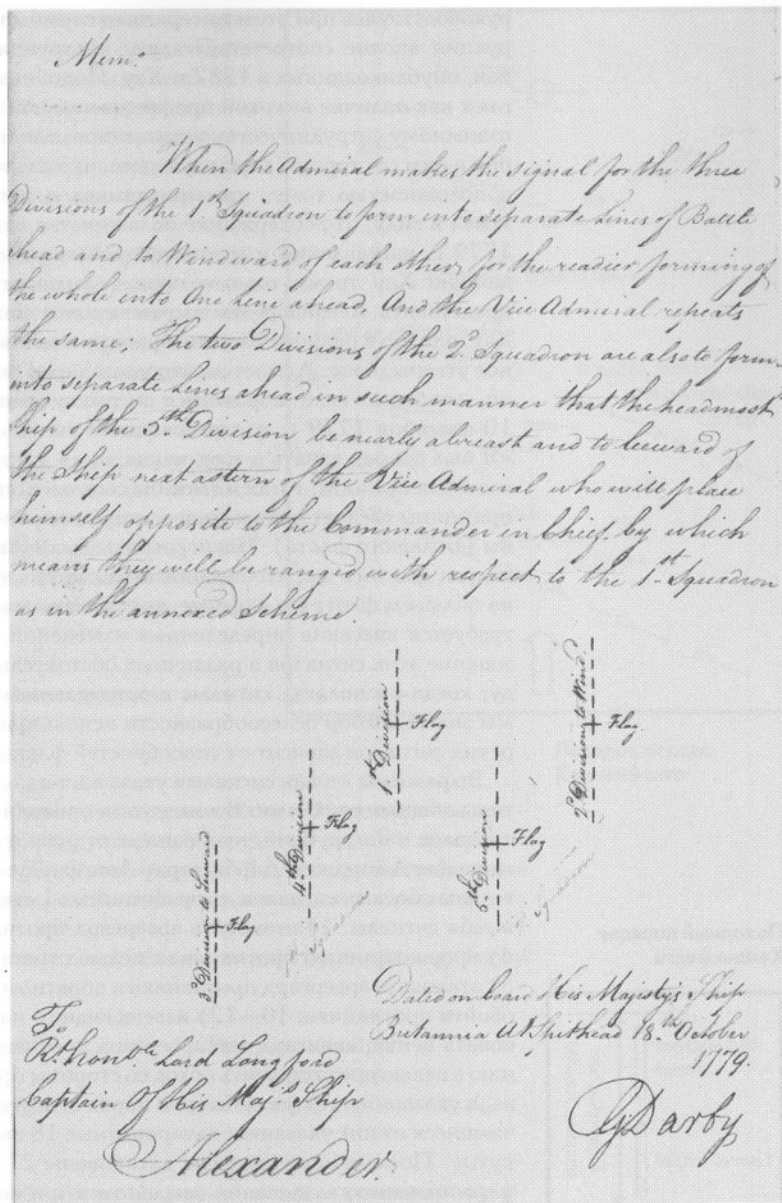 Mem.o
When the Admiral makes the signal for the three
Divisions of the 1.st Squadron to form into separate Lines of Battle
ahead and to Windward of each other, for the readier forming of
the whole into One Line ahead, And the Vice Admiral repeats
the same; The two Divisions of the 2.d Squadron are also to form
into separate Lines ahead in such manner that the headmost
Ship of the 5.th Division be nearly abreast and to leeward of
the Ship next astern of the Vice Admiral who will place
himself opposite to the Commander in Chief by which
means they will be ranged with respect to the 1.st Squadron
as in the annexed Scheme.
1.st Division
Flag
2.d Division to Wind.
Flag
4.th Division
Flag
5.th Division
Flag
3.d Division to Leeward
Flag
Dated on board His Majestys Ship
Britannia At Spithead 18.th October
1779.
To
R.t Hon.ble Lord Longford
Captain Of His Maj.s Ship
Alexander.
G Darby